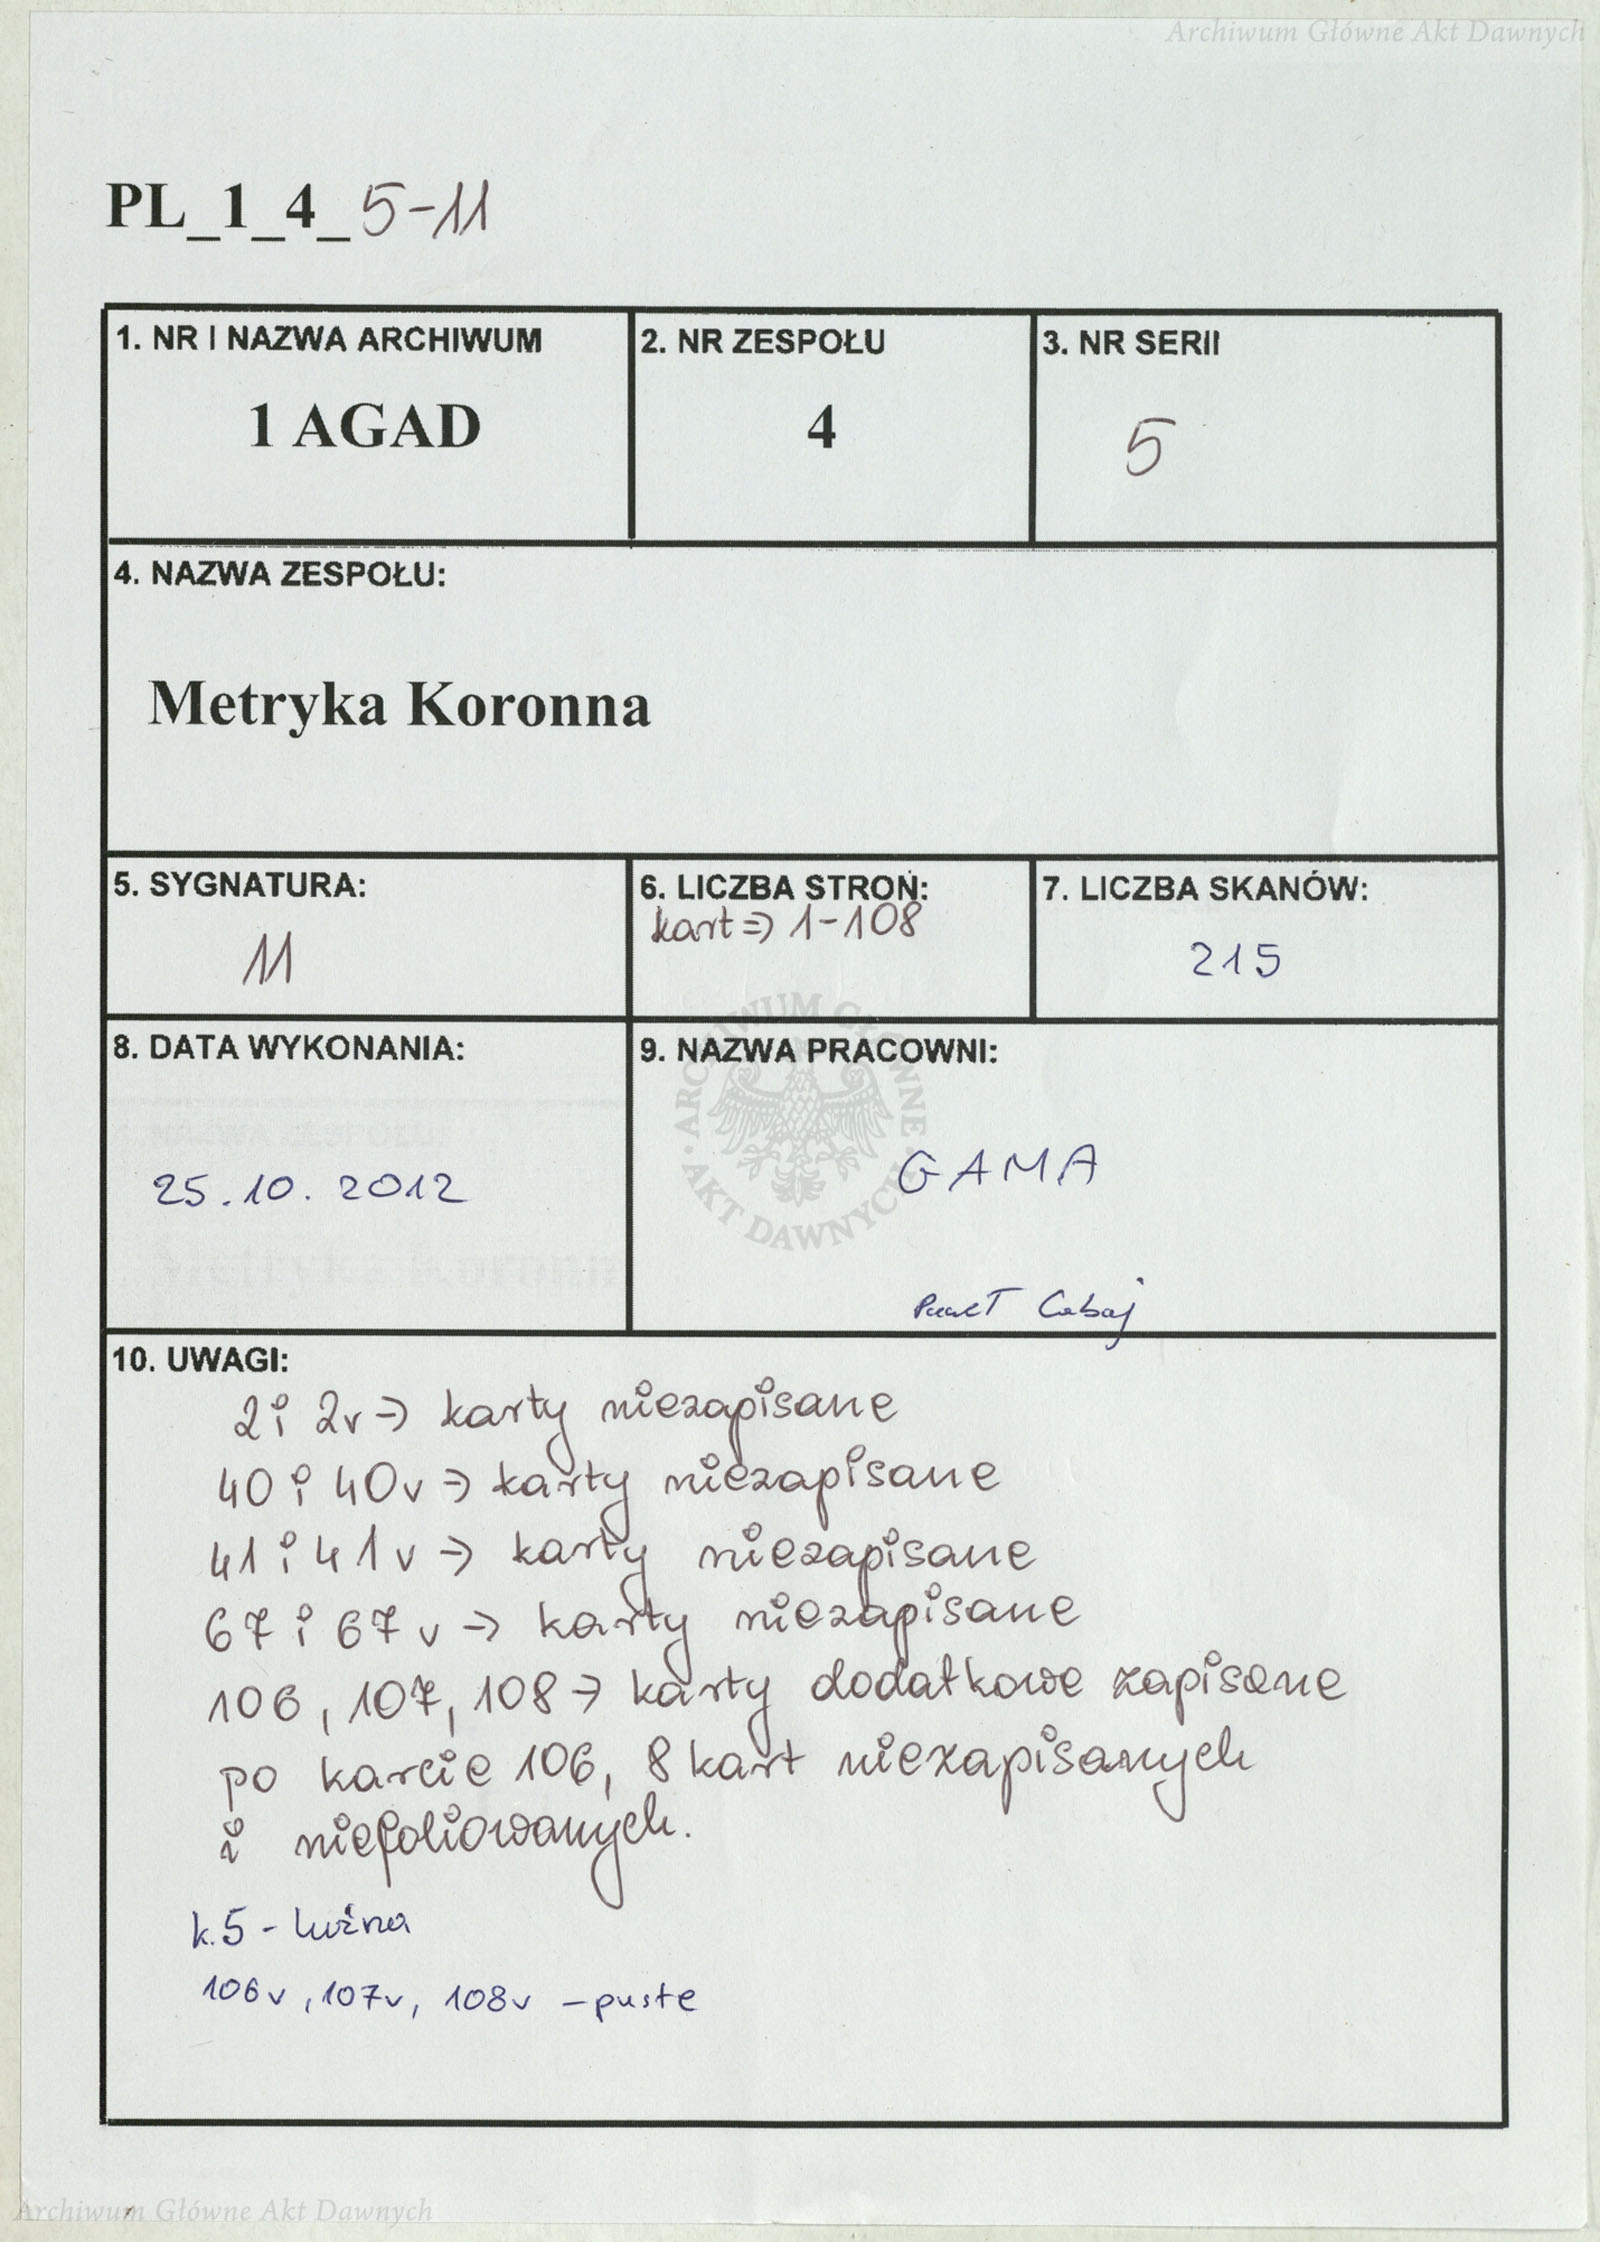 Archiwum Główne Akt Dawnych
PL_1_4_5-11
1. NR I NAZWA ARCHIWUM
1 AGAD
2. NR ZESPOŁU
4
3. NR SERII
5
4. NAZWA ZESPOŁU:
Metryka Koronna
5. SYGNATURA:
11
6. LICZBA STRON:
kart => 1-108
7. LICZBA SKANÓW:
215
8. DATA WYKONANIA:
25.10.2012
9. NAZWA PRACOWNI:
GAMA
Paweł Cabaj
ARCHIWUM GŁÓWNE • AKT DAWNYCH •
10. UWAGI:
2 i 2v => karty niezapisane
40 i 40v => karty niezapisane
41 i 41v => karty niezapisane
67 i 67v -> karty niezapisane
106, 107, 108 -> karty dodatkowe zapisane
po karcie 106, 8 kart niezapisanych
i niefoliowanych.
k.5 - luźna
106v, 107v, 108v - puste
Archiwum Główne Akt Dawnych